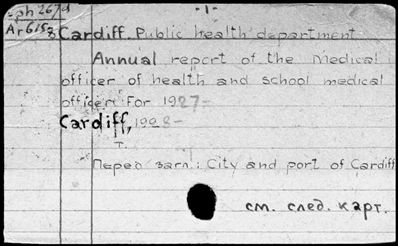 -1-
Cardiff. Public health department
Annual report of the medical
officer of health and school medical
officer: For 1927-
Cardiff, 1928-
т.
Перед загл.: City and port of Cardiff
см. след. карт.